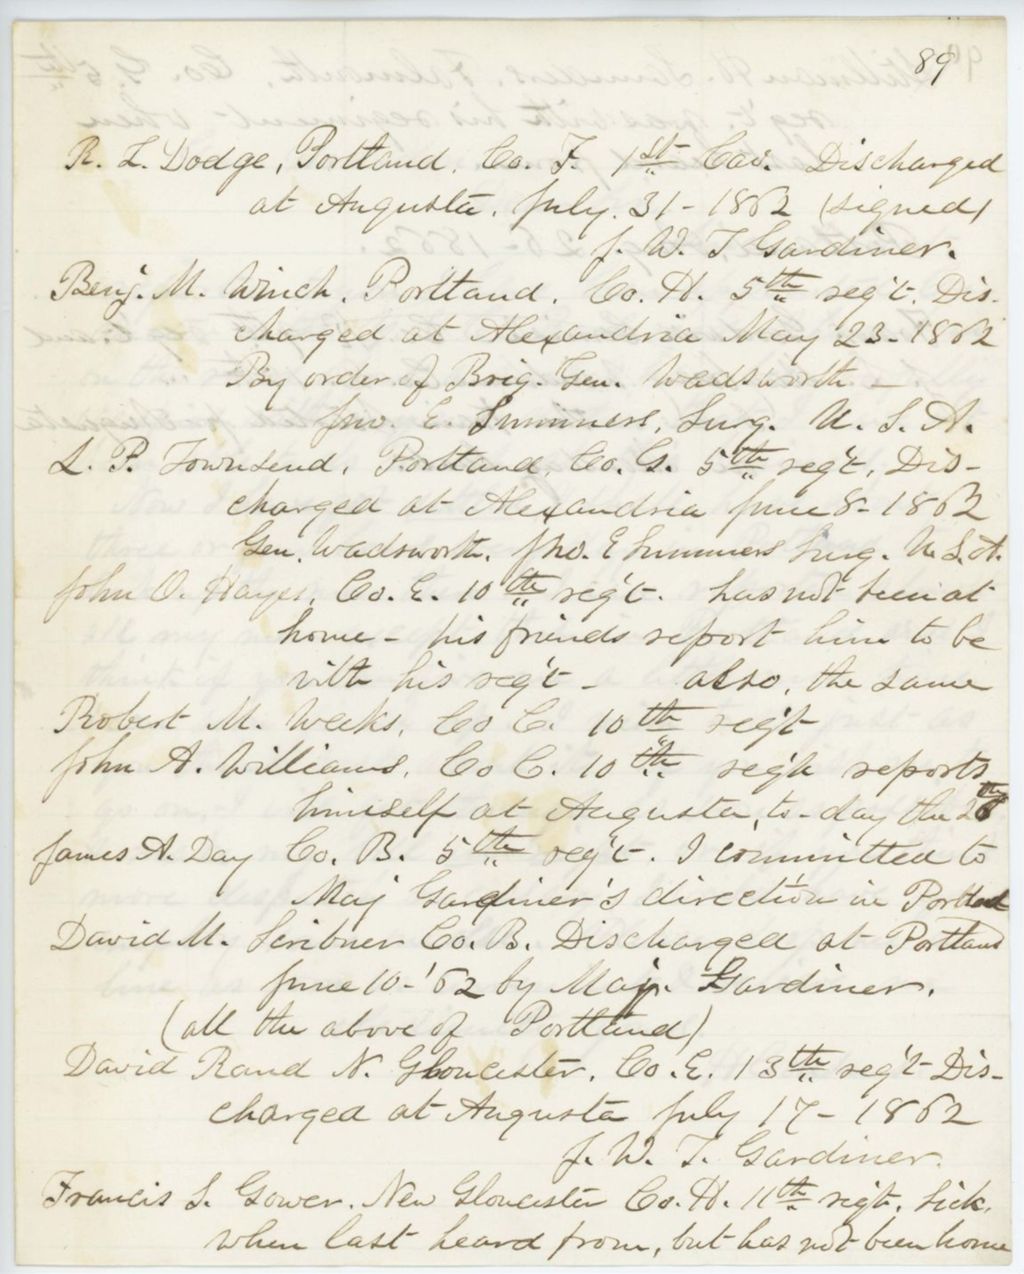 89
R. L. Dodge, Portland, Co. F. 1st Cav. Discharged
at Augusta, July. 31 - 1862 (signed)
J. W. T Gardiner.
Benj. M. Winch, Portland, Co. H. 5th reg't. Dis-
charged at Alexandria May 23 - 1862
By order of Brig. Gen. Wadsworth -
Jno. E. Summers, Surg. U. S. A.
L. P. Townsend, Portland, Co. G. 5th reg't, Dis-
charged at Alexandria June 8 - 1862
Gen. Wadsworth. Jno. E Summers Surg. U. S. A.
John O. Hayes, Co. E. 10th reg't. has not been at
home - his friends report him to be
with his reg't - also, the same
Robert M. Weeks, Co C. 10th reg't
John A. Williams, Co C. 10th reg't reports
himself at Augusta, to-day the
James A. Day Co. B. 5th reg't. I committed to
Maj Gardiner's direction in Portland
David M. Scribner Co. B. Discharged at Portland
June 10 - '62 by Maj. Gardiner.
(all the above of Portland)
David Rand N. Gloucester, Co. E. 13th reg't Dis-
charged at Augusta July 17 - 1862
J. W. T. Gardiner.
Francis S. Gower, New Gloucester Co. H. 11th reg't. Sick,
when last heard from, but has not been home